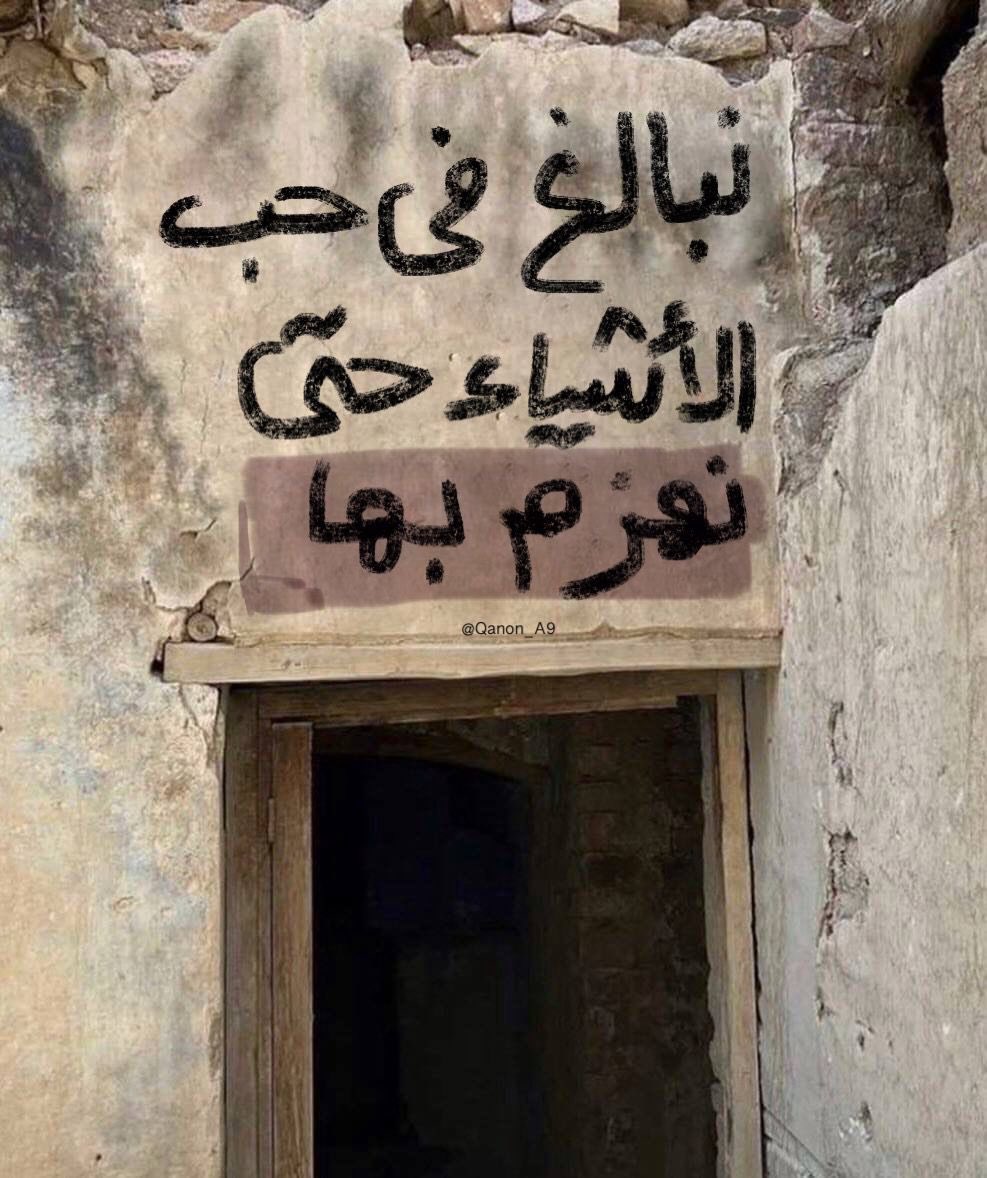 نبالغ في حب
الأشياء حتىّ
نهزم بها
@Qanon_A9